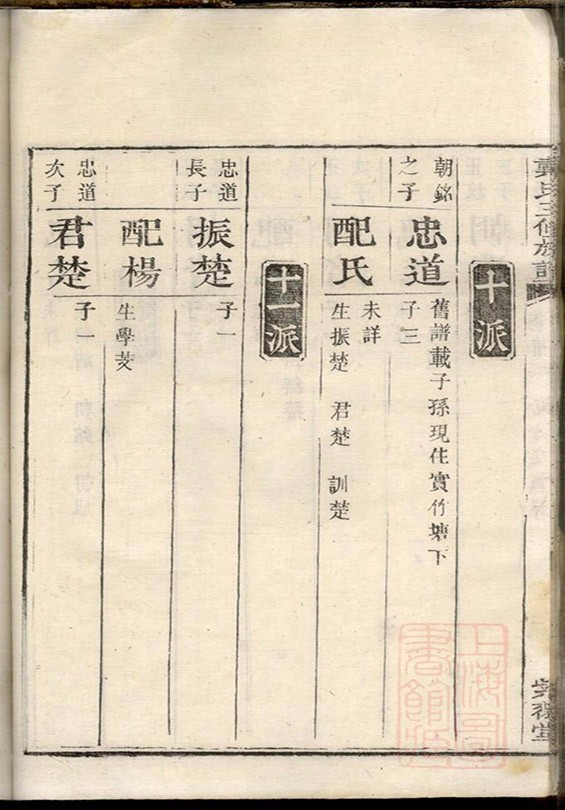 戴氏三修族譜
十派
朝銘之子
忠道
舊譜載子孫現住實竹塘下
子三
配氏
未詳
生振楚 君楚 訓楚
十一派
忠道長子
振楚
子一
配楊
生學芰
忠道次子
君楚
子一
上海圖書館藏